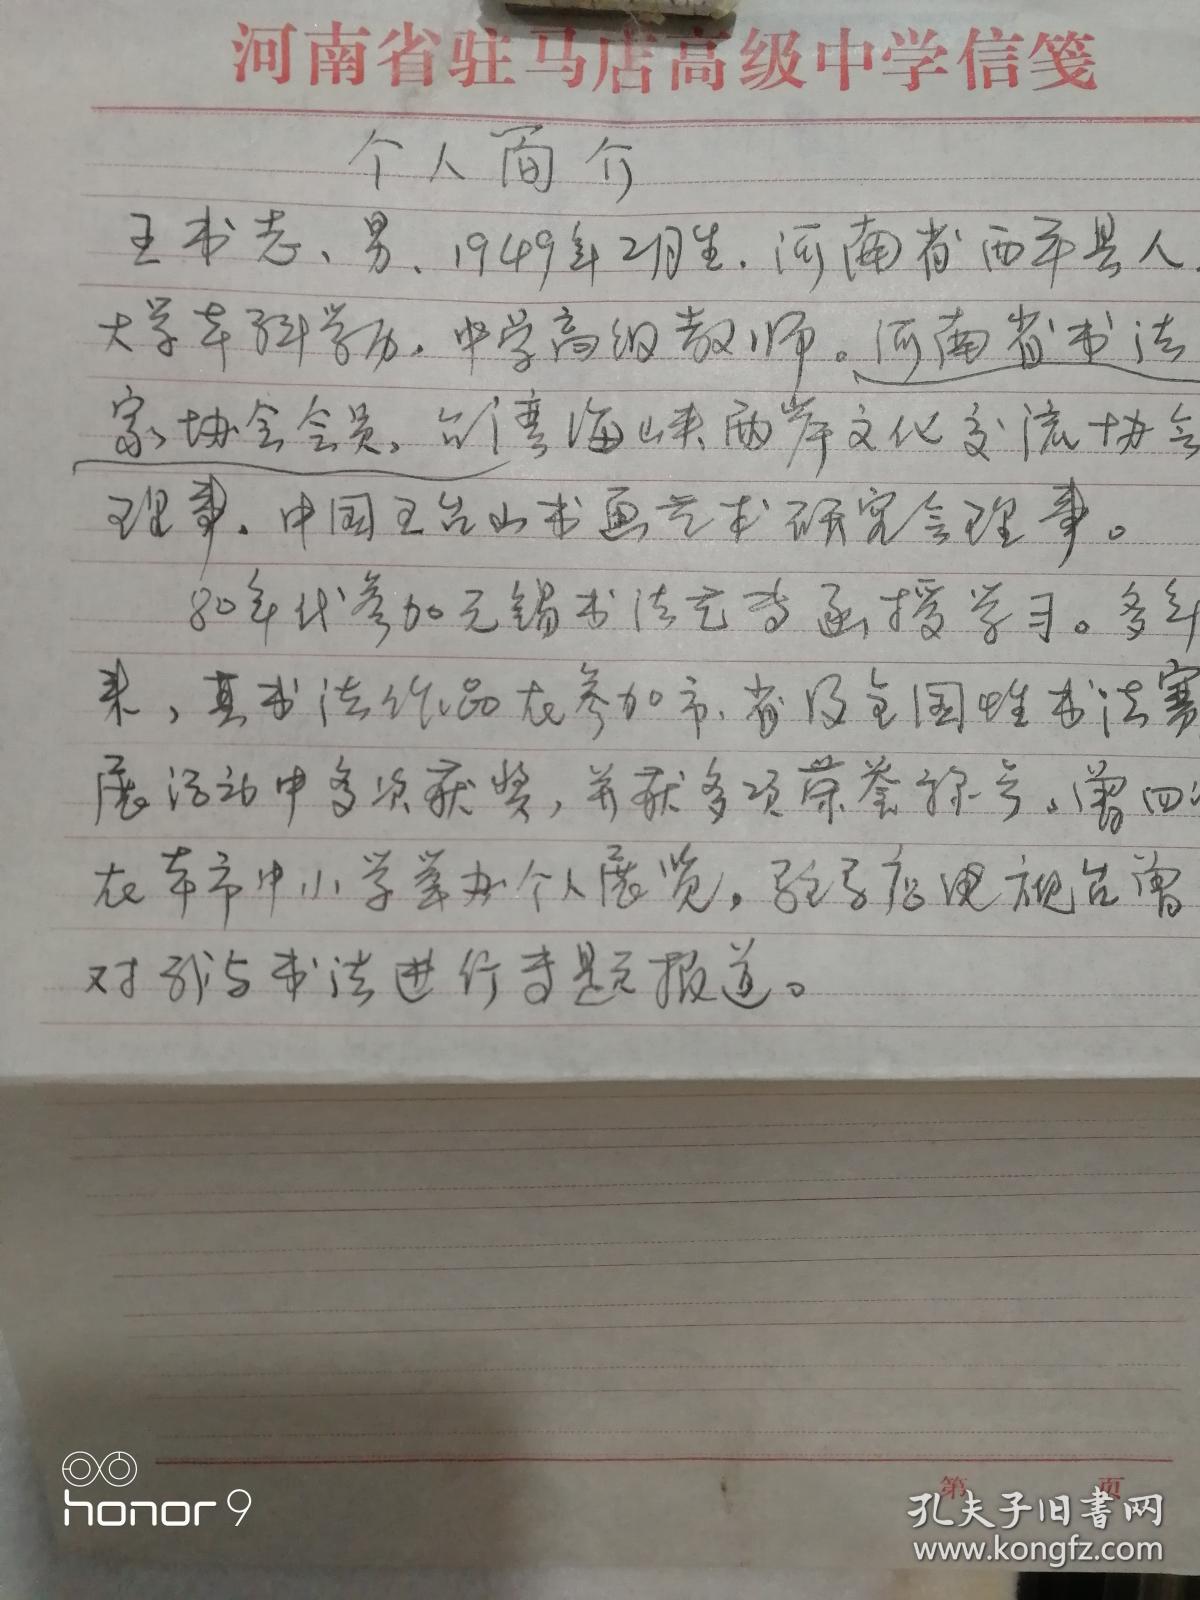 河南省驻马店高级中学信笺
个人简介
王书志、男、1949年2月生.河南省西平县人.
大学本科学历.中学高级教师。河南省书法
家协会会员.台湾海峡两岸文化交流协会
理事.中国王台山书画艺术研究会理事。
80年代参加无锡书法艺专函授学习。多年
来,其书法作品在参加市、省及全国性书法赛
展活动中多次获奖,并获多项荣誉称号。曾四次
在本市中小学举办个人展览。驻马店电视台曾
对我与书法进行专题报道。
第 页
honor 9
孔夫子旧书网
www.kongfz.com